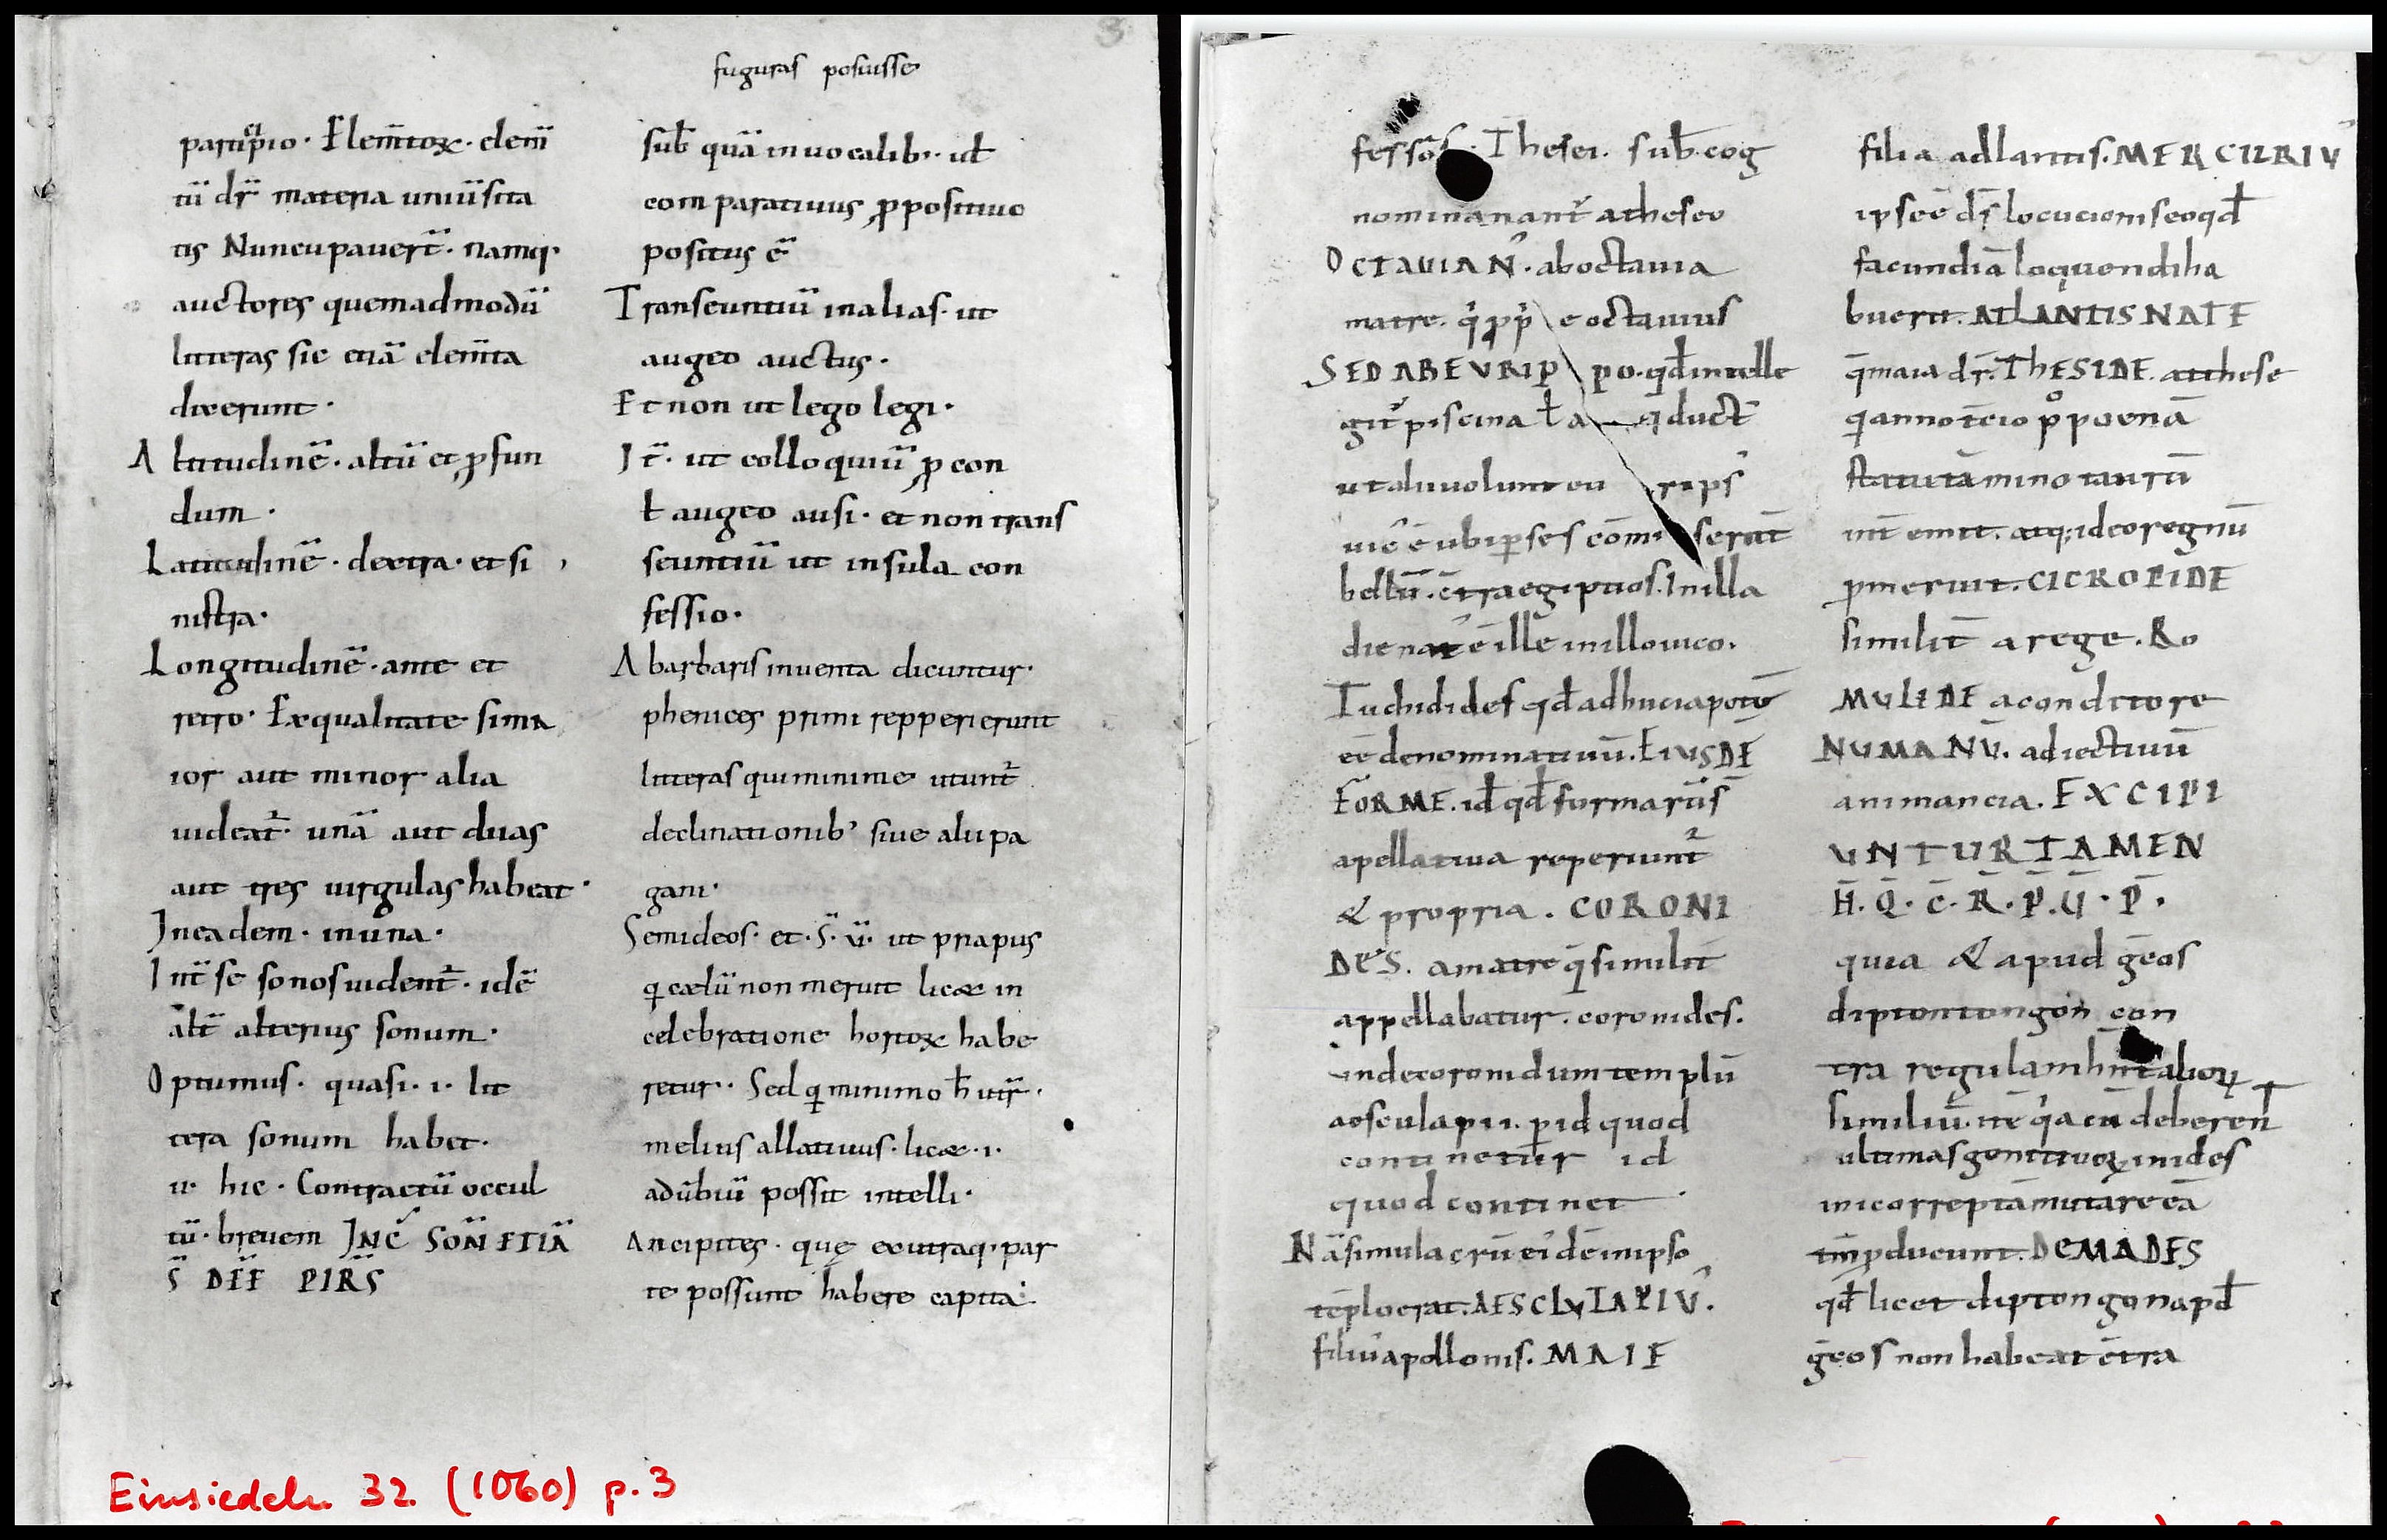 fuguras posuisse
partip̄io · Elem̄toꝝ · elem̄
tū dr̄ materia uniūsita
tis Nuncupauer̄t · namq·
auctores quemadmodū
litteras sic etiā elem̄ta
dixerunt ·
Altitudinē · altū et ꝓfun
dum ·
Latitudinē · dextra · et si
nistra ·
Longitudinē · ante et
retro · Exqualitate sima
ior aut minor alia
uideat̄ · unā aut duas
aut tres uirgulas habeat ·
Ineadem · inuna ·
Int̄ se sonos uident̄ · idē
alt̄ alterius sonum ·
Optumus · quasi · i · lit
tera sonum habet ·
u · hic · Contractū occul
tū · breuem INC̄ SON̄ ETIĀ
S̄ DIF̄F PIR̄S
sub̄ quā inuocalib · ut
comparatiuus ꝓpositiuo
positus ē
Transeuntiū inalias · ut
augeo auctus ·
Et non ut lego legi ·
It̄ · ut colloquiū ꝓ con
ƚ augeo ausi · et non trans
seuntiū ut insula con
fessio ·
Abarbaris inuenta dicuntur ·
phenices primi reppererunt
litteras qui minime utunt̄
declinationib' siue alii pa
gani ·
Semideos · et · S̄ · ū · ut priapus
q cælū non meruit licæ in
celebratione hortoꝝ habe
retur · Sed q minimo h̄ utr̄ ·
melius allatiuus · licæ · i ·
adūbiū possit intelli ·
Ancipites · quę exutraq · par
te possunt habere capita ·
fessos · Thesei · sub̄ · cog
nominanant̄ atheseo
OCTAUIAN̄ · aboctauia
matre · q̄ ꝓp̄ e octauius
SED ABEURIP po · qd̄ intelle
git̄ piscina ƚ a q duct̄
ut alii uolunt eu rips̄
uic̄ ē ubi ꝑses cōmi serat̄
bellū · c̄traegiptios · Inilla
die nat̄ ē ille inilloiuco ·
Tuchidides qd̄ adhuciapotō
eē denominatiuū · EIUSDĒ
FORME · id qd̄ formarū S̄
apellatiua reperiunt̄
& propria · CORONI
DES · amatre q̄ similit̄
appellabatur · coronides ·
undecoronidum templū
aosculapii · ꝑ id quod
continetur id
quod continet
Nāsimulacrū ei' dē inipso
tēploerat · AESCLVIAPIV̄ ·
filiu' apollonis · MAIE
filia adlantis · MERCURIV̄
ipseē dr̄ locucioniseoqd̄
facundiā loquendi ha
buerit · ATLANTIS NATE
q̄ maia dr̄ · ThESIDE · atthese
q anno t̄cio ꝓ poenā
statutā mino taurū
int̄ emit · atq; ideo regnū
ꝓmeruit · CICROPIDE
similit̄ arege · RO
MULIDE aconditore
NUMANŪ · adiectiuū
animancia · EXCIPI
UNTURTAMEN
H̄ · Q̄ · C̄ · R̄ · P̄ · Ū · P̄ ·
quia & apud ḡeos
diptontongōn con
tra regulam hn̄t alioꝝ
similiū · nē q̄a cū deberen̄t
ultimas genitiuoꝝ inides
incorreptā mutare eā
tm̄ ꝓducunt · DEMADES
qd̄ licet diptongon apd̄
ḡeos non habeat c̄tra
Einsiedeln 32 (1060) p. 3